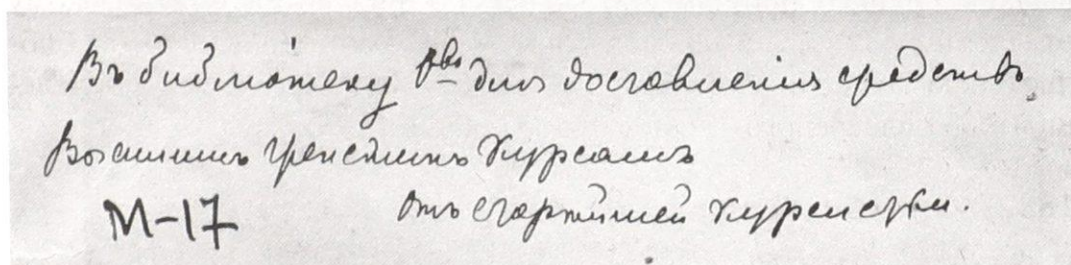 Въ библіотеку О-во для доставленія средствъ
Высшимъ женскимъ курсамъ
М-17 отъ старѣйшей курсистки.